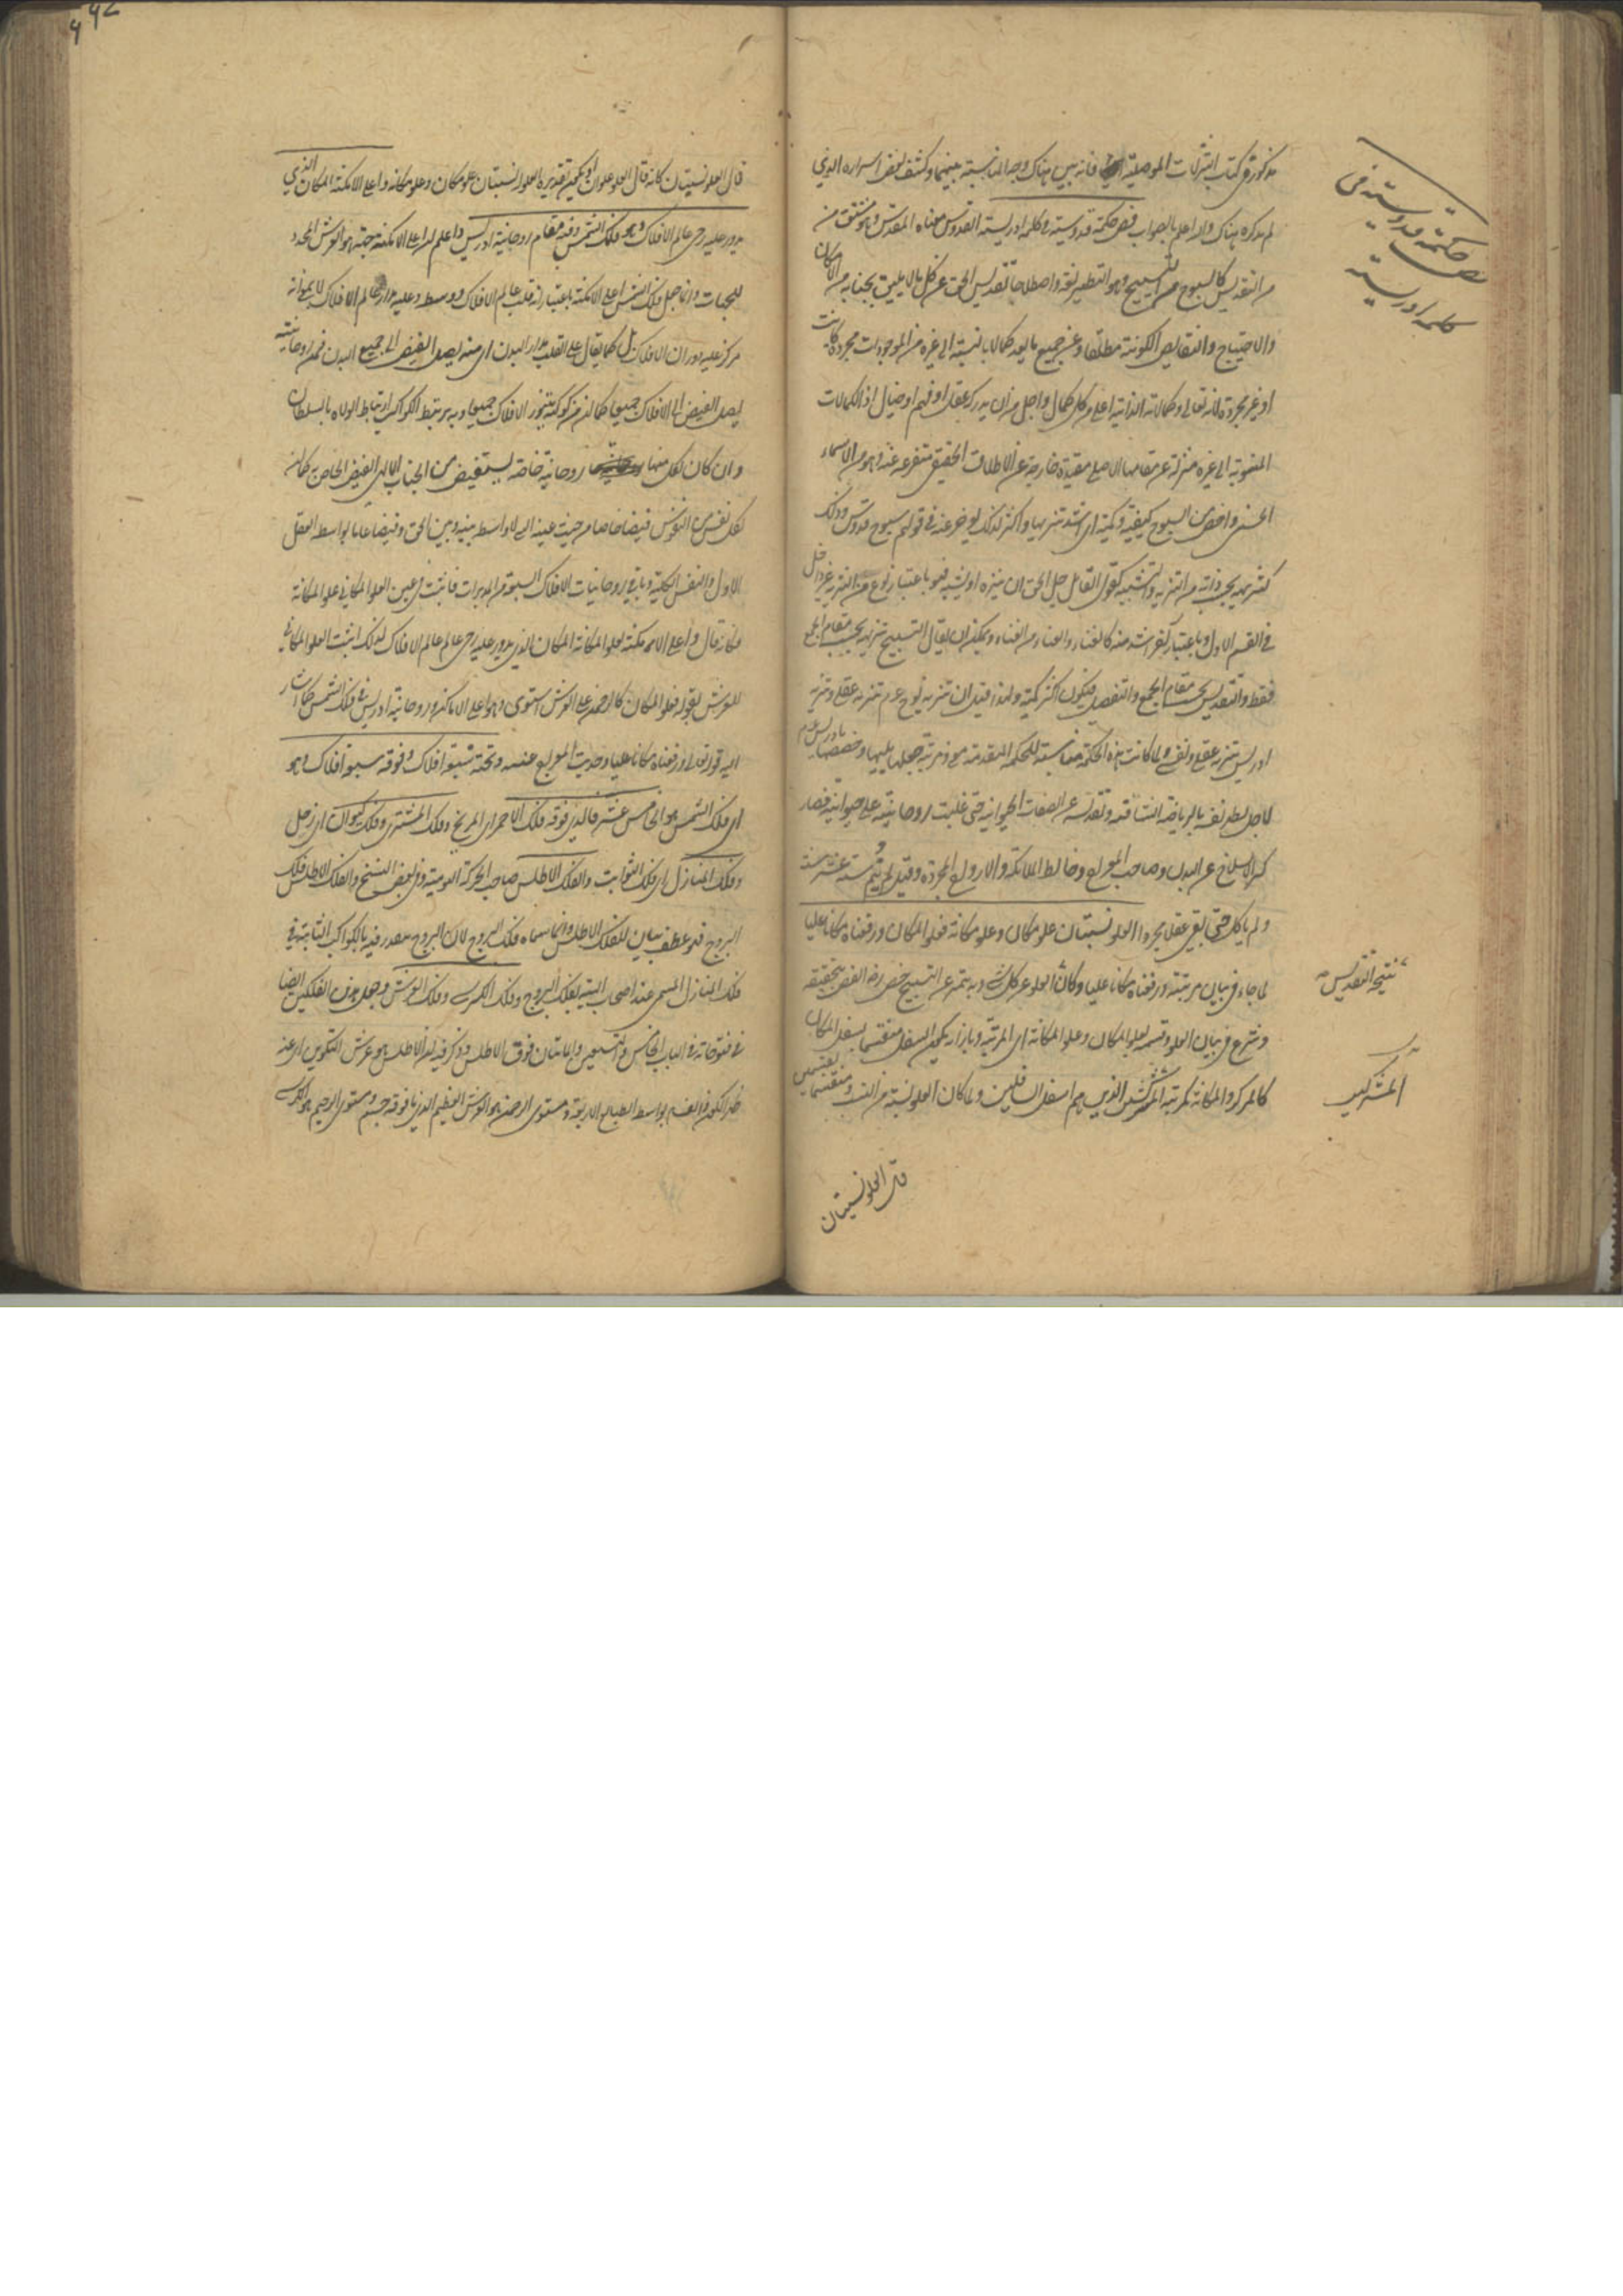 مذكورة في كتاب التنزلات الموصلية فانه بين هناك وجه المناسبة بينهما وكشف بعض اسراره الذي
لم يذكره هناك والله اعلم بالصواب فص حكمة قدوسية في كلمة ادريسية القدوس معناه المقدس وهو مشتق من
من التقديس كالسبوح من التسبيح وهو التطهير لغة واصطلاحا تقديس الحق عن كل ما لا يليق بجنابه من الامكان
والاحتياج والنقايص الكونية مطلقا وعن جميع ما يعد كمالا بالنسبة الى غيره من الموجودات مجردة كانت
او غير مجردة لانه تعالى وكمالاته الذاتية اعلى من كل كمال واجل من ان يدركه عقل او فهم او خيال اذ الكمالات
المنسوبة الى غيره منزلة عن مقامها الاصلي مقيدة خارجة عن الاطلاق الحقيقي متفرعة عنه وهو من الاسماء
الحسنى واخص من السبوح كيفية وكمية اي اشد تنزيها واكثر لذلك اخر عنه في قولهم سبوح قدوس وذلك
كتنزيهه بحسب ذاته من التنزيه والتشبيه كقول القائل جل الحق ان ينزه او يشبه فهو باعتبار نوع من التنزيه غير داخل
في القسم الاول وباعتبار اخر اشد منه كالفناء والفناء من الفناء ويمكن ان يقال التسبيح تنزيه بحسب مقام الجمع
فقط والتقديس بحسب مقام الجمع والتفصيل فيكون اكثر كمية ولهذا قيل ان تنزيه نوح عم تنزيه عقلي وتنزيه
ادريس تنزيه عقلي ونفسي ولما كانت هذه الحكمة مناسبة للحكمة المتقدمة معنى ومرتبة جعلها يليها وخصصها بادريس عم
لاجل تطهير نفسه بالرياضة الشاقة وتقدسه عن الصفات الحيوانية حتى غلبت روحانيته على حيوانيته فصار
كثير الانسلاخ عن البدن وصاحب المعراج وخالط الملائكة والارواح المجردة وقيل لم ينم ستة عشر سنة
ولم ياكل حتى بقى عقلا مجردا العلو نسبتان علو مكان وعلو مكانة فعلو المكان ورفعناه مكانا عليا
لما جاء في بيان مرتبته ورفعناه مكانا عليا وكان العلو عن كل شيء وبه يتميز عن التسبيح خص رضه الفص بتحقيقه
وشرع في بيان العلو وقسمه بعلو المكان وعلو المكانة اي المرتبة وبازائه يكون السفل منقسما بسفل المكان
كالمركز والمكانة كمرتبة المشركين الذين هم اسفل السافلين ولما كان العلو نسبة من النسب ومنقسما بقسمين
قال العلو نسبتان
فص حكمة قدوسية في
كلمة ادريسية
نتيجة التقديس
المشركين
قال العلو نسبتان كانه قال العلو علوان او يكون تقديره العلو له نسبتان علو مكان وعلو مكانة واعلى الامكنة المكان الذي
يدور عليه رحى عالم الافلاك وهو فلك الشمس وفيه مقام روحانية ادريس واعلم ان اعلى الامكنة جهة هو العرش المحدد
للجهات وانما جعل فلك الشمس اعلى الامكنة باعتبار انه قلب عالم الافلاك ووسطه وعليه مدار عالم الافلاك لا بمعنى انه
مركز عليه دوران الافلاك بل كما يقال على القلب مدار البدن اي منه يصل الفيض الى جميع البدن فمن روحانيته
يصل الفيض الى الافلاك جميعا كما ان من كوكبه يتنور الافلاك جميعا وبه يرتبط الكواكب ارتباط الولاة بالسلطان
وان كان لكل منها روحانية خاصة يستفيض من الجناب الالهي الفيض الخاص به كما ان
لكل نفس من النفوس فيضا خاصا من حيث عينه اليه لا واسطة بينه وبين الحق وفيضا عاما بواسطة العقل
الاول والنفس الكلية وباقي روحانيات الافلاك السبعة من المدبرات فاثبت عين العلو المكاني علو المكانة
وكانه قال واعلى الامكنة بعلو المكانة المكان الذي يدور عليه رحى عالم الافلاك لذلك اثبت العلو المكاني
للعرش بقوله فعلو المكان كالرحمن على العرش استوى وهو اعلى الاماكن وروحانية ادريس في فلك الشمس كما اشار
اليه قوله تعالى ورفعناه مكانا عليا وحديث المعراج عنه وتحته سبعة افلاك وفوقه سبعة افلاك وهو
اي فلك الشمس هو الخامس عشر فالذي فوقه فلك الاحمر اي المريخ وفلك المشتري وفلك كيوان اي زحل
وفلك المنازل اي فلك الثوابت والفلك الاطلس صاحب الحركة اليومية وفي بعض النسخ والفلك الاطلس فلك
البروج فهو عطف بيان للفلك الاطلس وانما سماه فلك البروج لان البروج يتقدر فيه بالكواكب الثابتة في
فلك المنازل المسمى عند اصحاب الهيئة بفلك البروج وفلك الكرسي وفلك العرش وجعل هذين الفلكين ايضا
في فتوحاته في الباب الخامس والتسعين والمائتان فوق الاطلس وذكر فيه ان الاطلس هو عرش التكوين اي عنه
ظهر الكون والفساد بواسطة الطبائع الاربعة ومستوى الرحمن هو العرش العظيم الذي ما فوقه جسم ومستوى الرحيم هو الكرسي